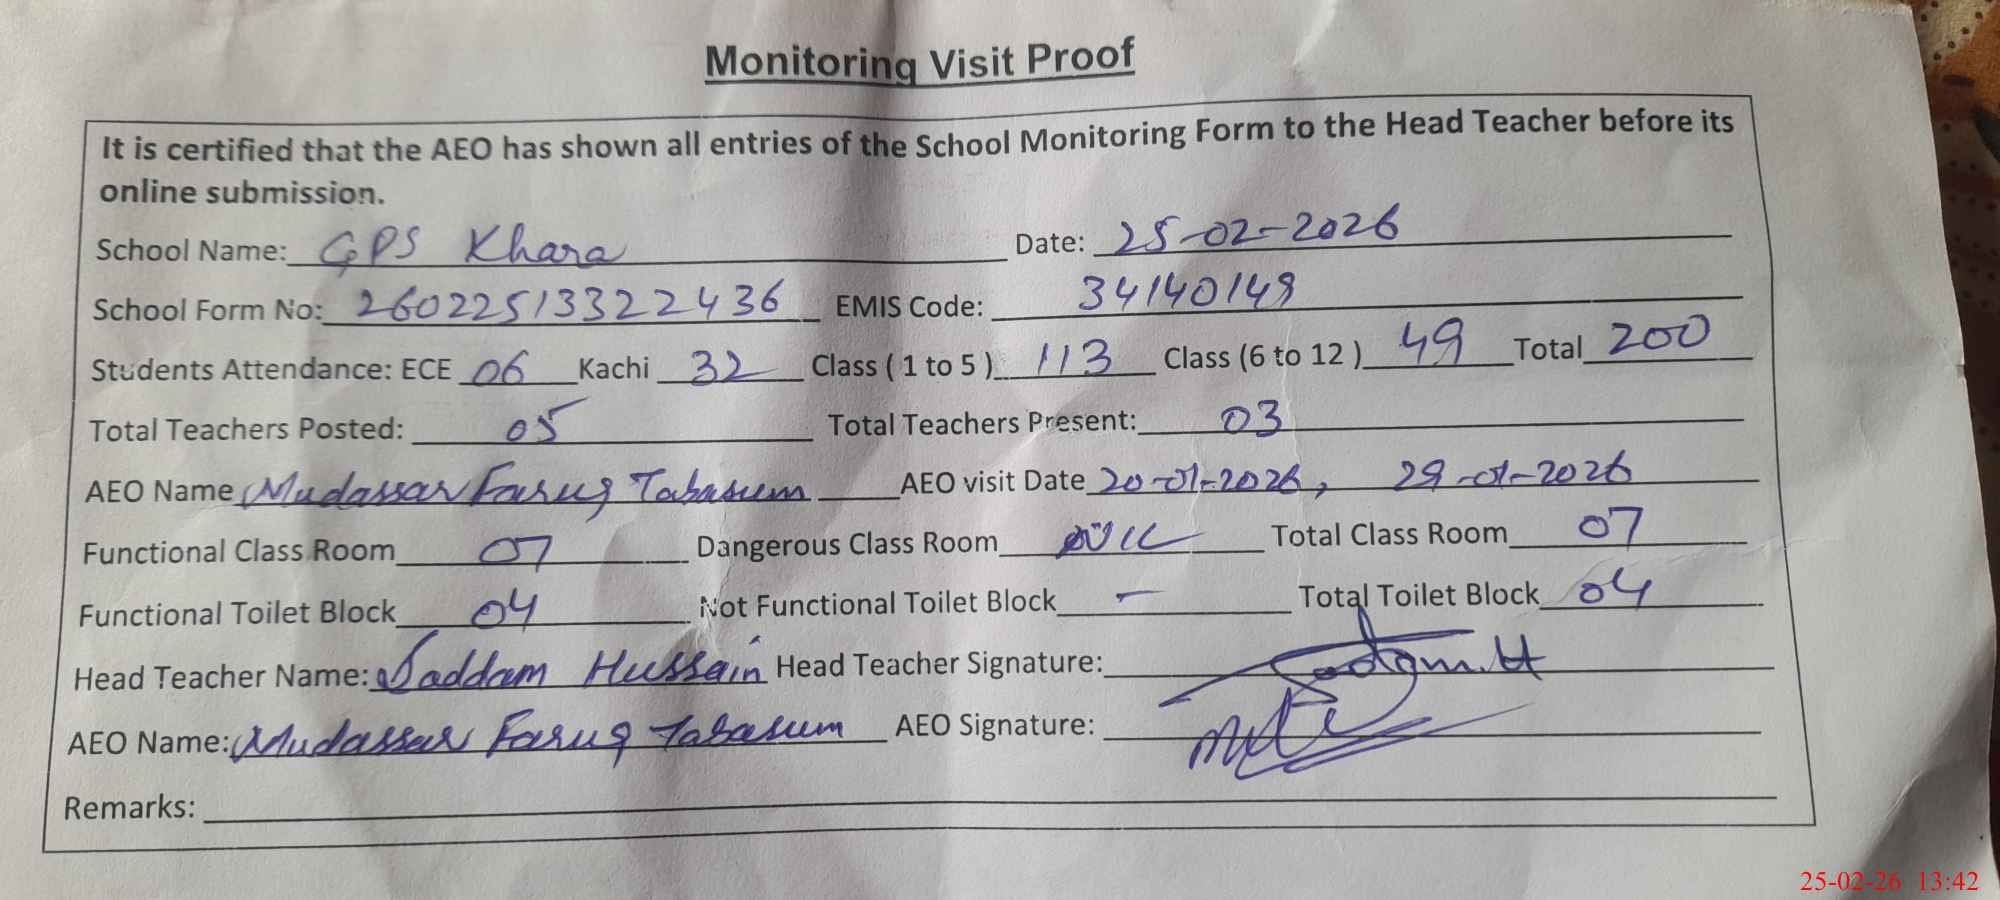 Monitoring Visit Proof
It is certified that the AEO has shown all entries of the School Monitoring Form to the Head Teacher before its
online submission.
School Name: GPS Khara Date: 25-02-2026
School Form No: 26022513322436 EMIS Code: 34140149
Students Attendance: ECE 06 Kachi 32 Class ( 1 to 5 ) 113 Class (6 to 12 ) 49 Total 200
Total Teachers Posted: 05 Total Teachers Present: 03
AEO Name Mudassar Faruq Tabasum AEO visit Date 20-01-2026, 29-01-2026
Functional Class Room 07 Dangerous Class Room Nil Total Class Room 07
Functional Toilet Block 04 Not Functional Toilet Block - Total Toilet Block 04
Head Teacher Name: Saddam Hussain Head Teacher Signature:
AEO Name: Mudassar Faruq Tabasum AEO Signature:
Remarks:
25-02-26 13:42